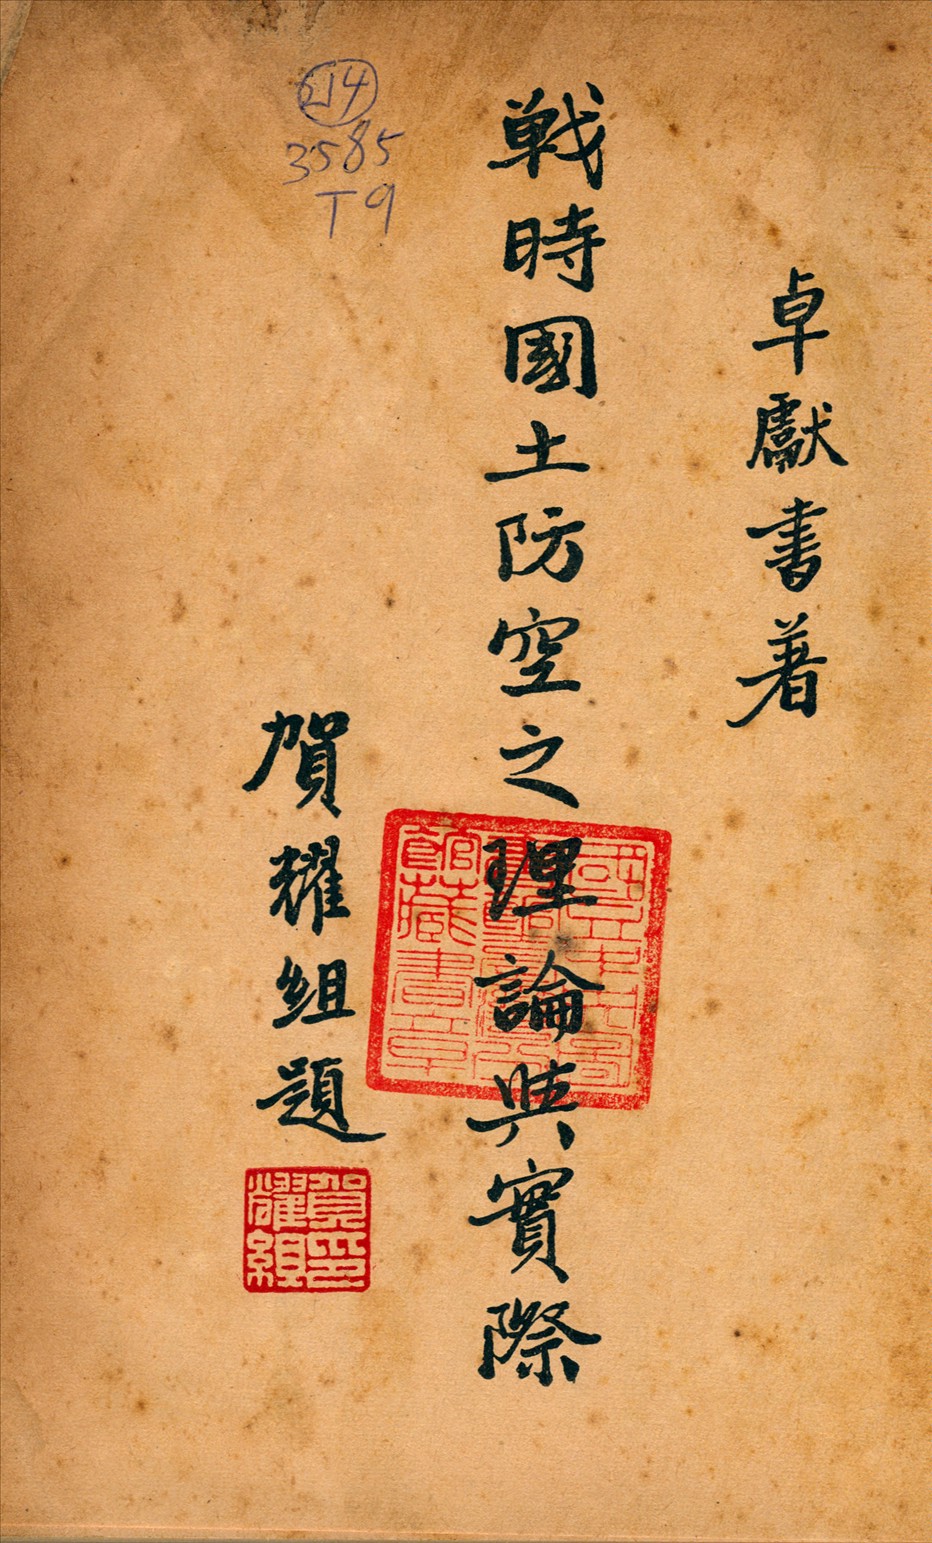 卓獻書著
戰時國土防空之理論與實際
賀耀組題
賀印耀組
214
3585
T9